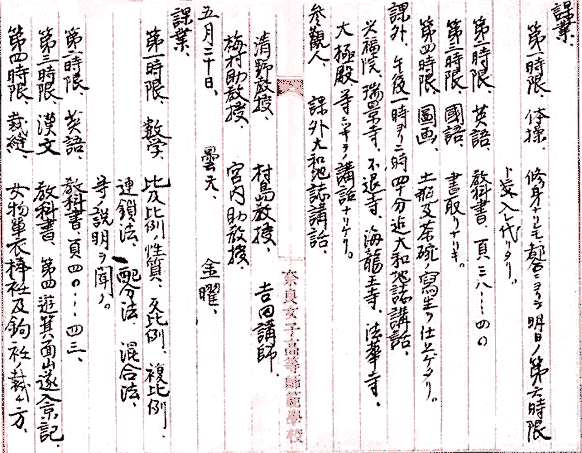 課業、
第一時限、体操、 修身ナリシモ都合ニヨリテ明日ノ第六時限
ト交入レ代リタリ。
第二時限 英語、 教科書、頁三八…四〇
第三時限 國語、 書取リナリキ。
第四時限 圖画、 土瓶及茶碗ノ寫生ヲ仕上ゲタリ。
課外、午後一時ヨリ二時四十分迄大和地誌講話、
興福院、瑞景寺、不退寺、海龍王寺、法華寺、
大極殿、等ニツキテノ講話ナリケリ。
参觀人 課外大和地誌講話、
清野教授、 村島教授、 吉田講師、
梅村助教授、 宮内助教授、
奈良女子高等師範學校
五月二十日、 曇天、 金曜、
課業、
第一時限、数学、 比及比例ノ性質、反比例、複比例、
連鎖法、配分法、混合法、
等ノ説明ヲ聞ク。
第二時限 英語、 教科書、頁四〇…四三、
第三時限 漢文 教科書、第四 遊箕面山遂入京記、
第四時限、裁縫、 女物單衣 袵及 裁チ方、